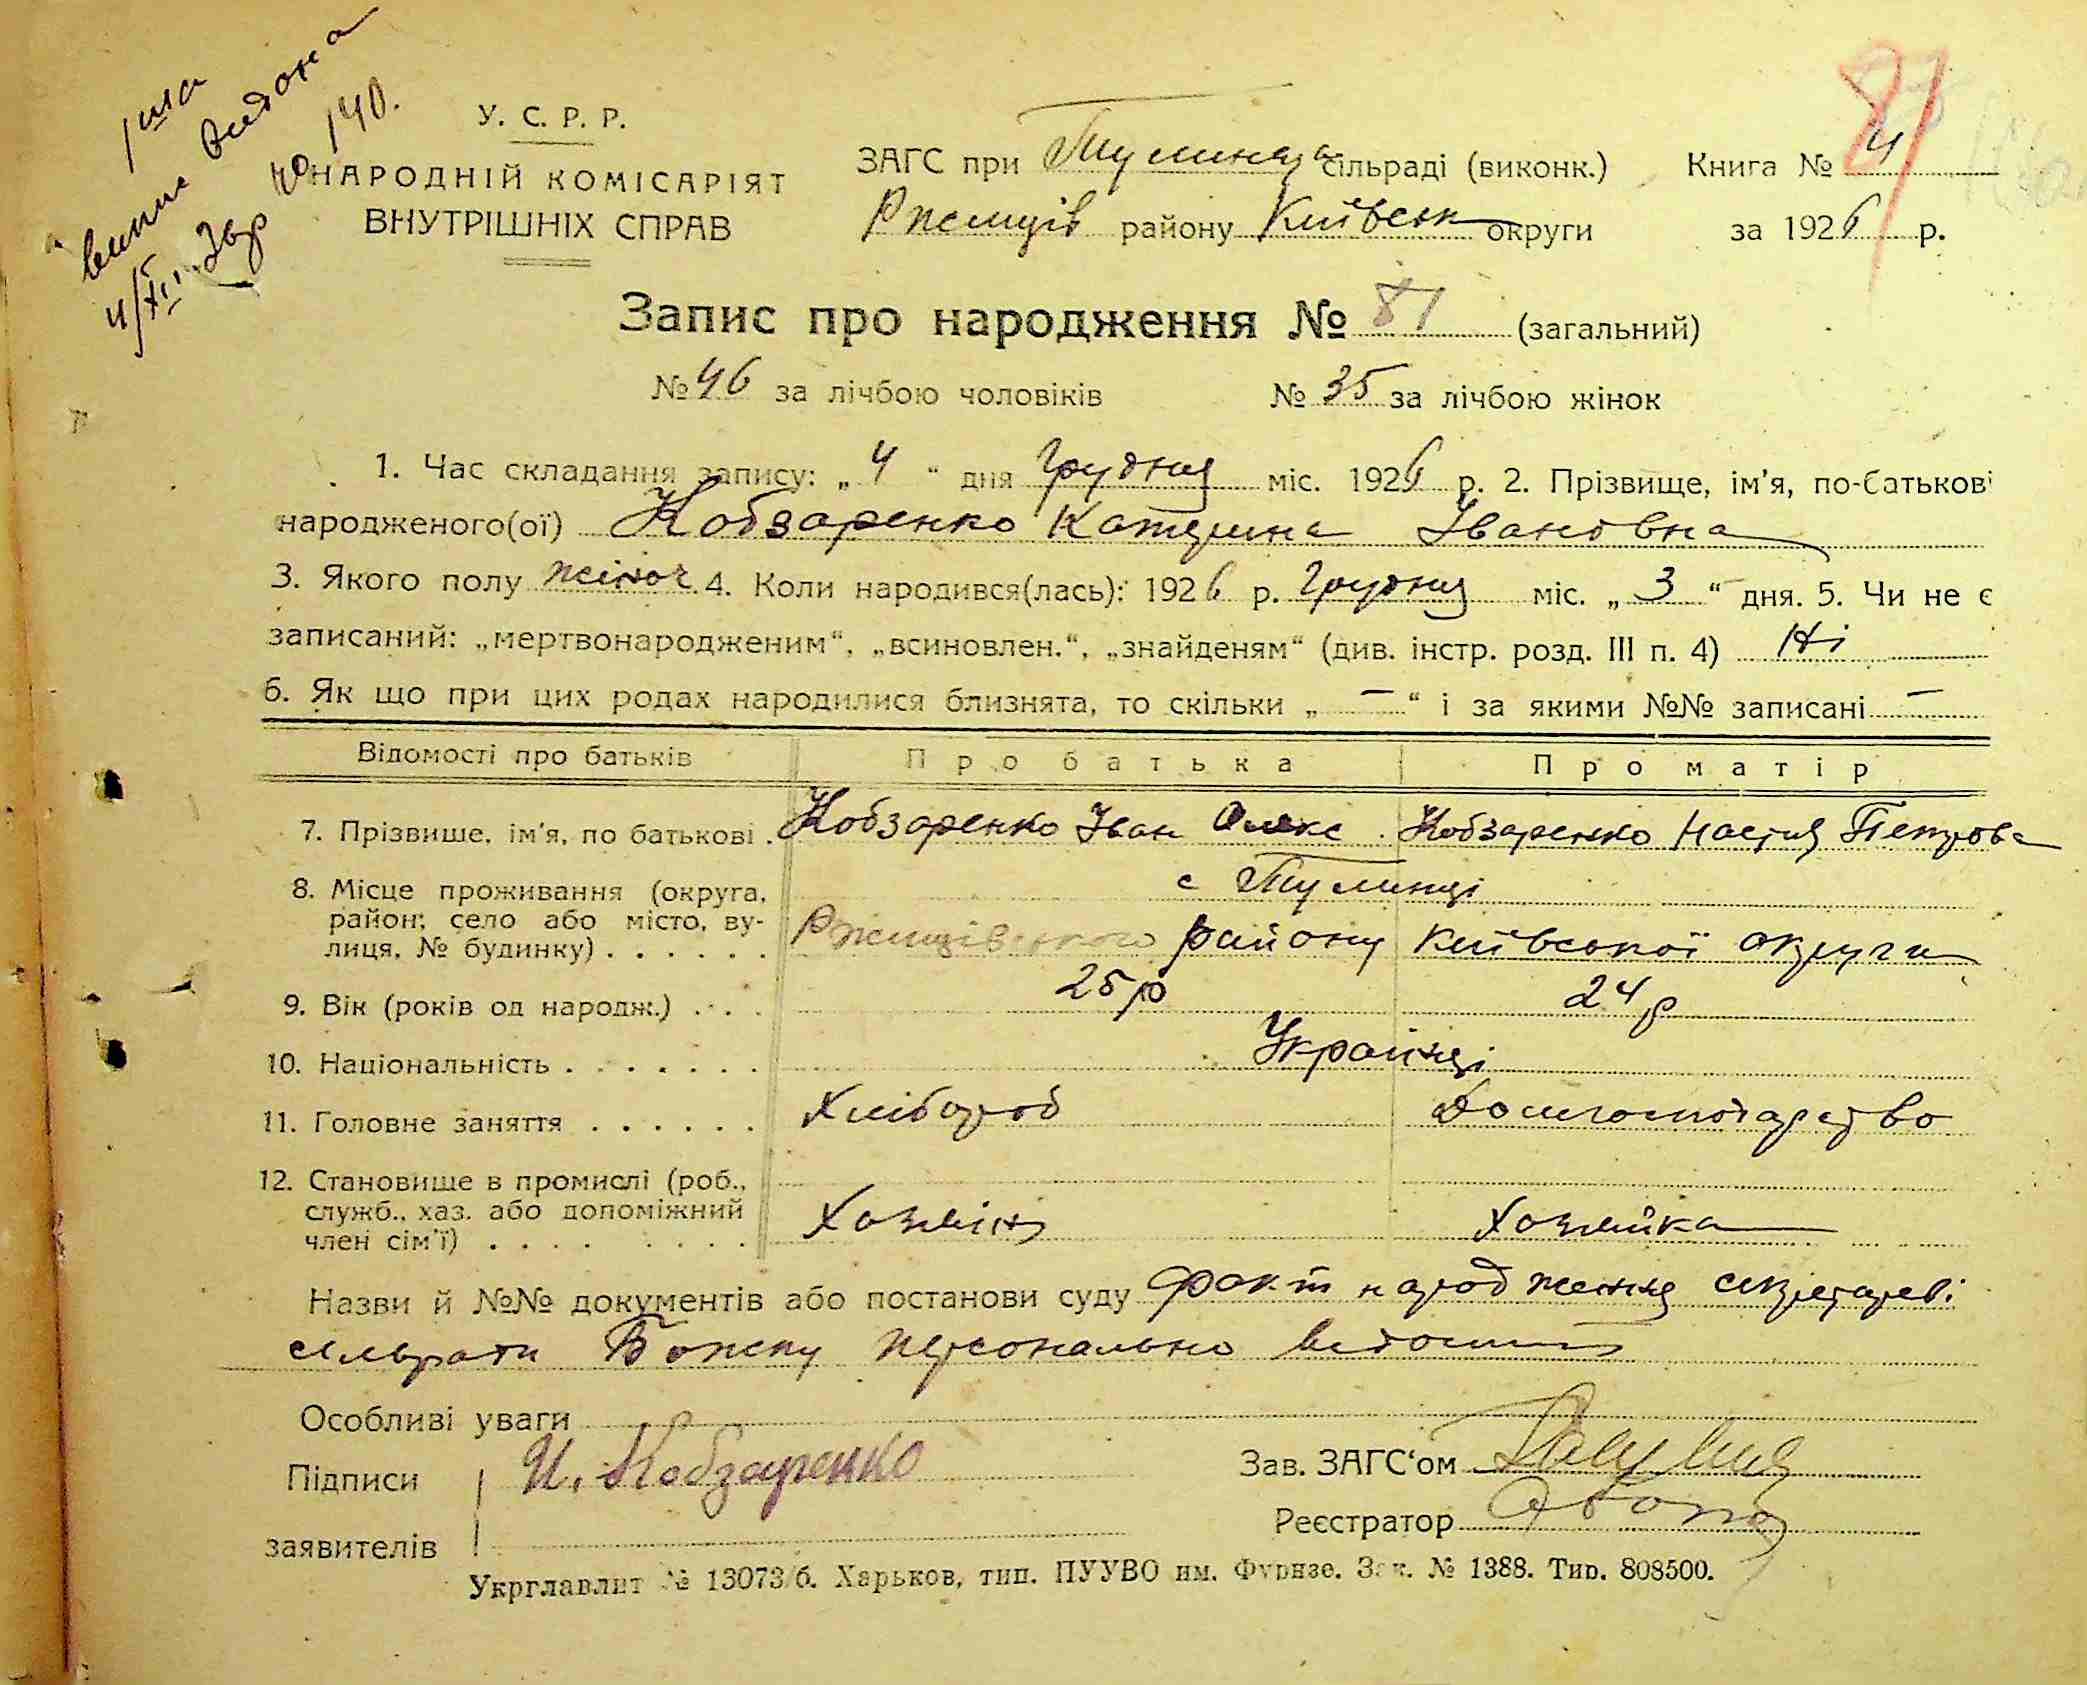 1 ша
випис видана
4/XII 40 р №140.
81
У. С. Р. Р.
НАРОДНІЙ КОМІСАРІЯТ
ВНУТРІШНІХ СПРАВ
ЗАГС при Тулинська сільраді (виконк.) Книга № 4
Ржищів району Київськ округи за 1926 р.
Запис про народження № 81 (загальний)
№ 46 за лічбою чоловіків № 35 за лічбою жінок
1. Час складання запису: „ 4 “ дня Грудня міс. 1926 р. 2. Прізвище, ім'я, по-батькові
народженого(ої) Кобзаренко Катерина Івановна
3. Якого полу жіноч. 4. Коли народився(лась): 1926 р. Грудня міс. „ 3 “ дня. 5. Чи не є
записаний: „мертвонародженим“, „всиновлен.“, „знайденям“ (див. інстр. розд. III п. 4) Ні
6. Як що при цих родах народилися близнята, то скільки „ — “ і за якими №№ записані —
Відомості про батьків Про батька Про матір
7. Прізвище, ім'я, по батькові . Кобзаренко Іван Олекс. Кобзаренко Настя Петрова
8. Місце проживання (округа, с Тулинці
район, село або місто, ву- Ржищівського району Київської округи
лиця, № будинку) . . . . . .
9. Вік (років од народж.) . . . 25 р 24 р
10. Національність . . . . . . . Українці
11. Головне заняття . . . . . . Хлібороб Домгосподарство
12. Становище в промислі (роб.,
служб., хаз. або допоміжний Хозяїн Хозяйка
член сім'ї) . . . . . . . .
Назви й №№ документів або постанови суду факт народження секретареві
сільради персонально відомий
Особливі уваги
Підписи И. Кобзаренко Зав. ЗАГС‘ом
Реєстратор
заявителів
Укрглавлит № 13073/б. Харьков, тип. ПУУВО им. Фрунзе. Зак. № 1388. Тир. 808500.